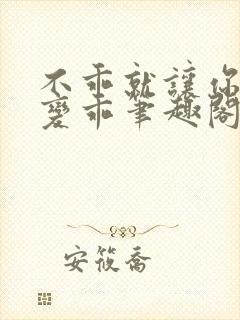 不乖就讓你
變乖筆趣閣
安筱喬